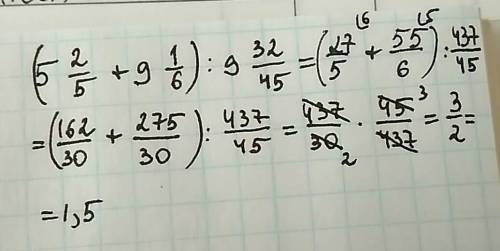 (5 2/5 + 9 1/6) : 9 32/45 = (27/5 (6 + 55/6 (5) : 437/45
= (162/30 + 275/30) : 437/45 = 437/30 2 · 45 3/437 = 3/2 =
= 1,5